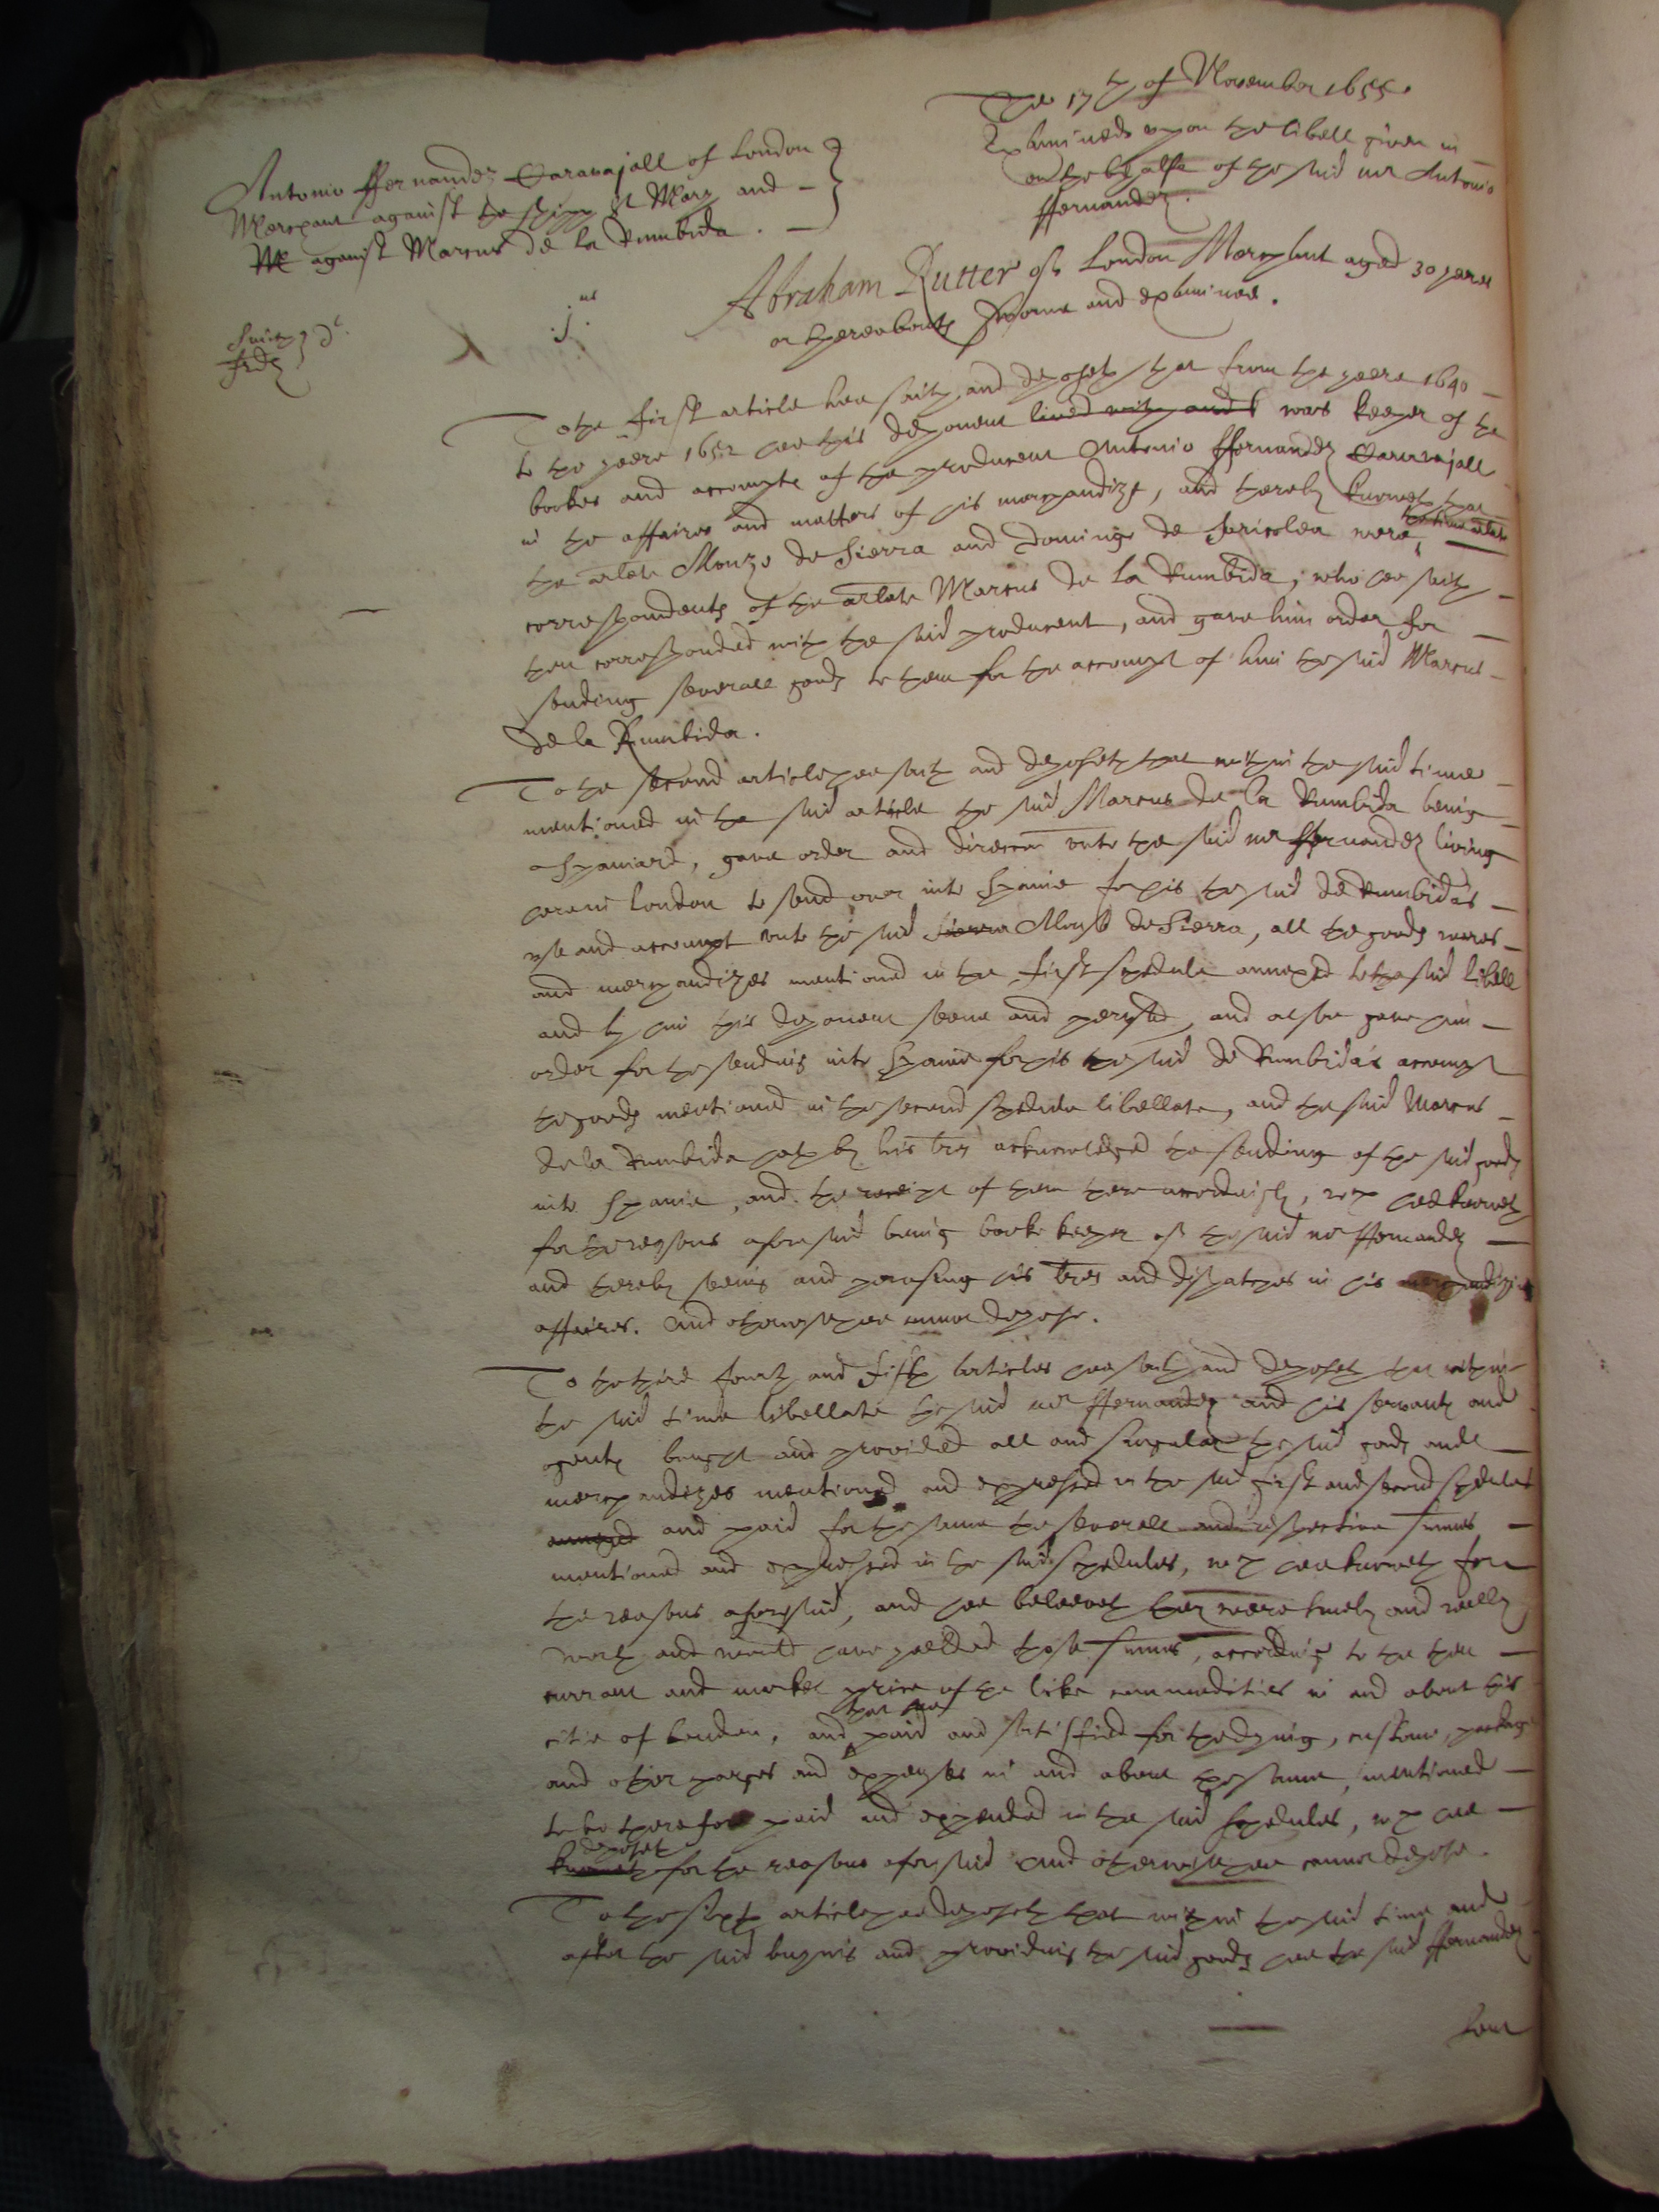 The 17th of November 1655.
Examined upon the libell given in
on the behalfe of the said mr Antonio
ffernandez.
Antonio ffernandez Caravajall of London
Merchant against the shipp St Mary and
against Marcus de la Rumbida.
Smith dt.
1us
Abraham Rutter of London Merchant aged 30 yeares
or thereabouts sworne and examined.
To the first article hee saith and deposeth that from the yeere 1640
to the yeere 1652 hee this deponent lived with and was keeper of the
bookes and accompts of the producent Antonio ffernandez Caravajall
in the affaires and matters of his merchandize, and thereby knoweth that
the time arlate
the arlate Alonzo de Sierra and Domingo de were
correspondents of the arlate Marcus de la Rumbida, who hee saith
then corresponded with the said producent, and gave him order for
sending severall goods to them for the accompt of him the said Marcus
de la Rumbida.
To the second article hee saith and deposeth that within the said time
mentioned in the said article the said Marcus de la Rumbida being
a Spaniard, gave order and direccon unto the said mr ffernandez living
here in London to send over into Spaine for his the said de Rumbida's
use and accompt unto the said Sierra Alonso de Sierra, all the goods wares
and merchandizes mentioned in the first schedule annexed to the said libell
and by him this deponent seene and perused, and alsoe gave him
order for the sending into Spaine for his the said de Rumbida's accompt
the goods mentioned in the second schedule libellate, and the said Marcus
de la Rumbida hath by his lres acknowledged the sending of the said goods
into Spaine, and the receipt of them there accordingly, wch hee knoweth
for the reasons aforesaid being booke keeper of the said mr ffernandez
and thereby seeing and perusing his lres and dispatches in his merchandizing
affaires. And otherwise hee cannot depose.
To the third fourth and fifth articles hee saith and deposeth that within
the said time libellate the said mr ffernandez and his servants and
agents bought and provided all and singular the said goods and
merchandizes mentioned and expressed in the said first and second schedules
annexed and paid for the same the severall and respective summes
mentioned and expressed in the said schedules, wch hee knoweth for
the reasons aforesaid, and hee beleeveth they were truely and really
worth and would have yeelded those summes, according to the then
currant and market price of the like commodities in and about this
that hee
citie of London, and paid and satisfied for the dying, custome, package
and other charges and expenses in and about the same, mentioned
to be therefore paid and expended in the said schedules, wch hee
deposeth
knoweth for the reasons aforesaid And otherwise hee cannot depose.
To the sixth article hee deposeth that within the said time and
after the said buying and providing the said goods hee the said ffernandez